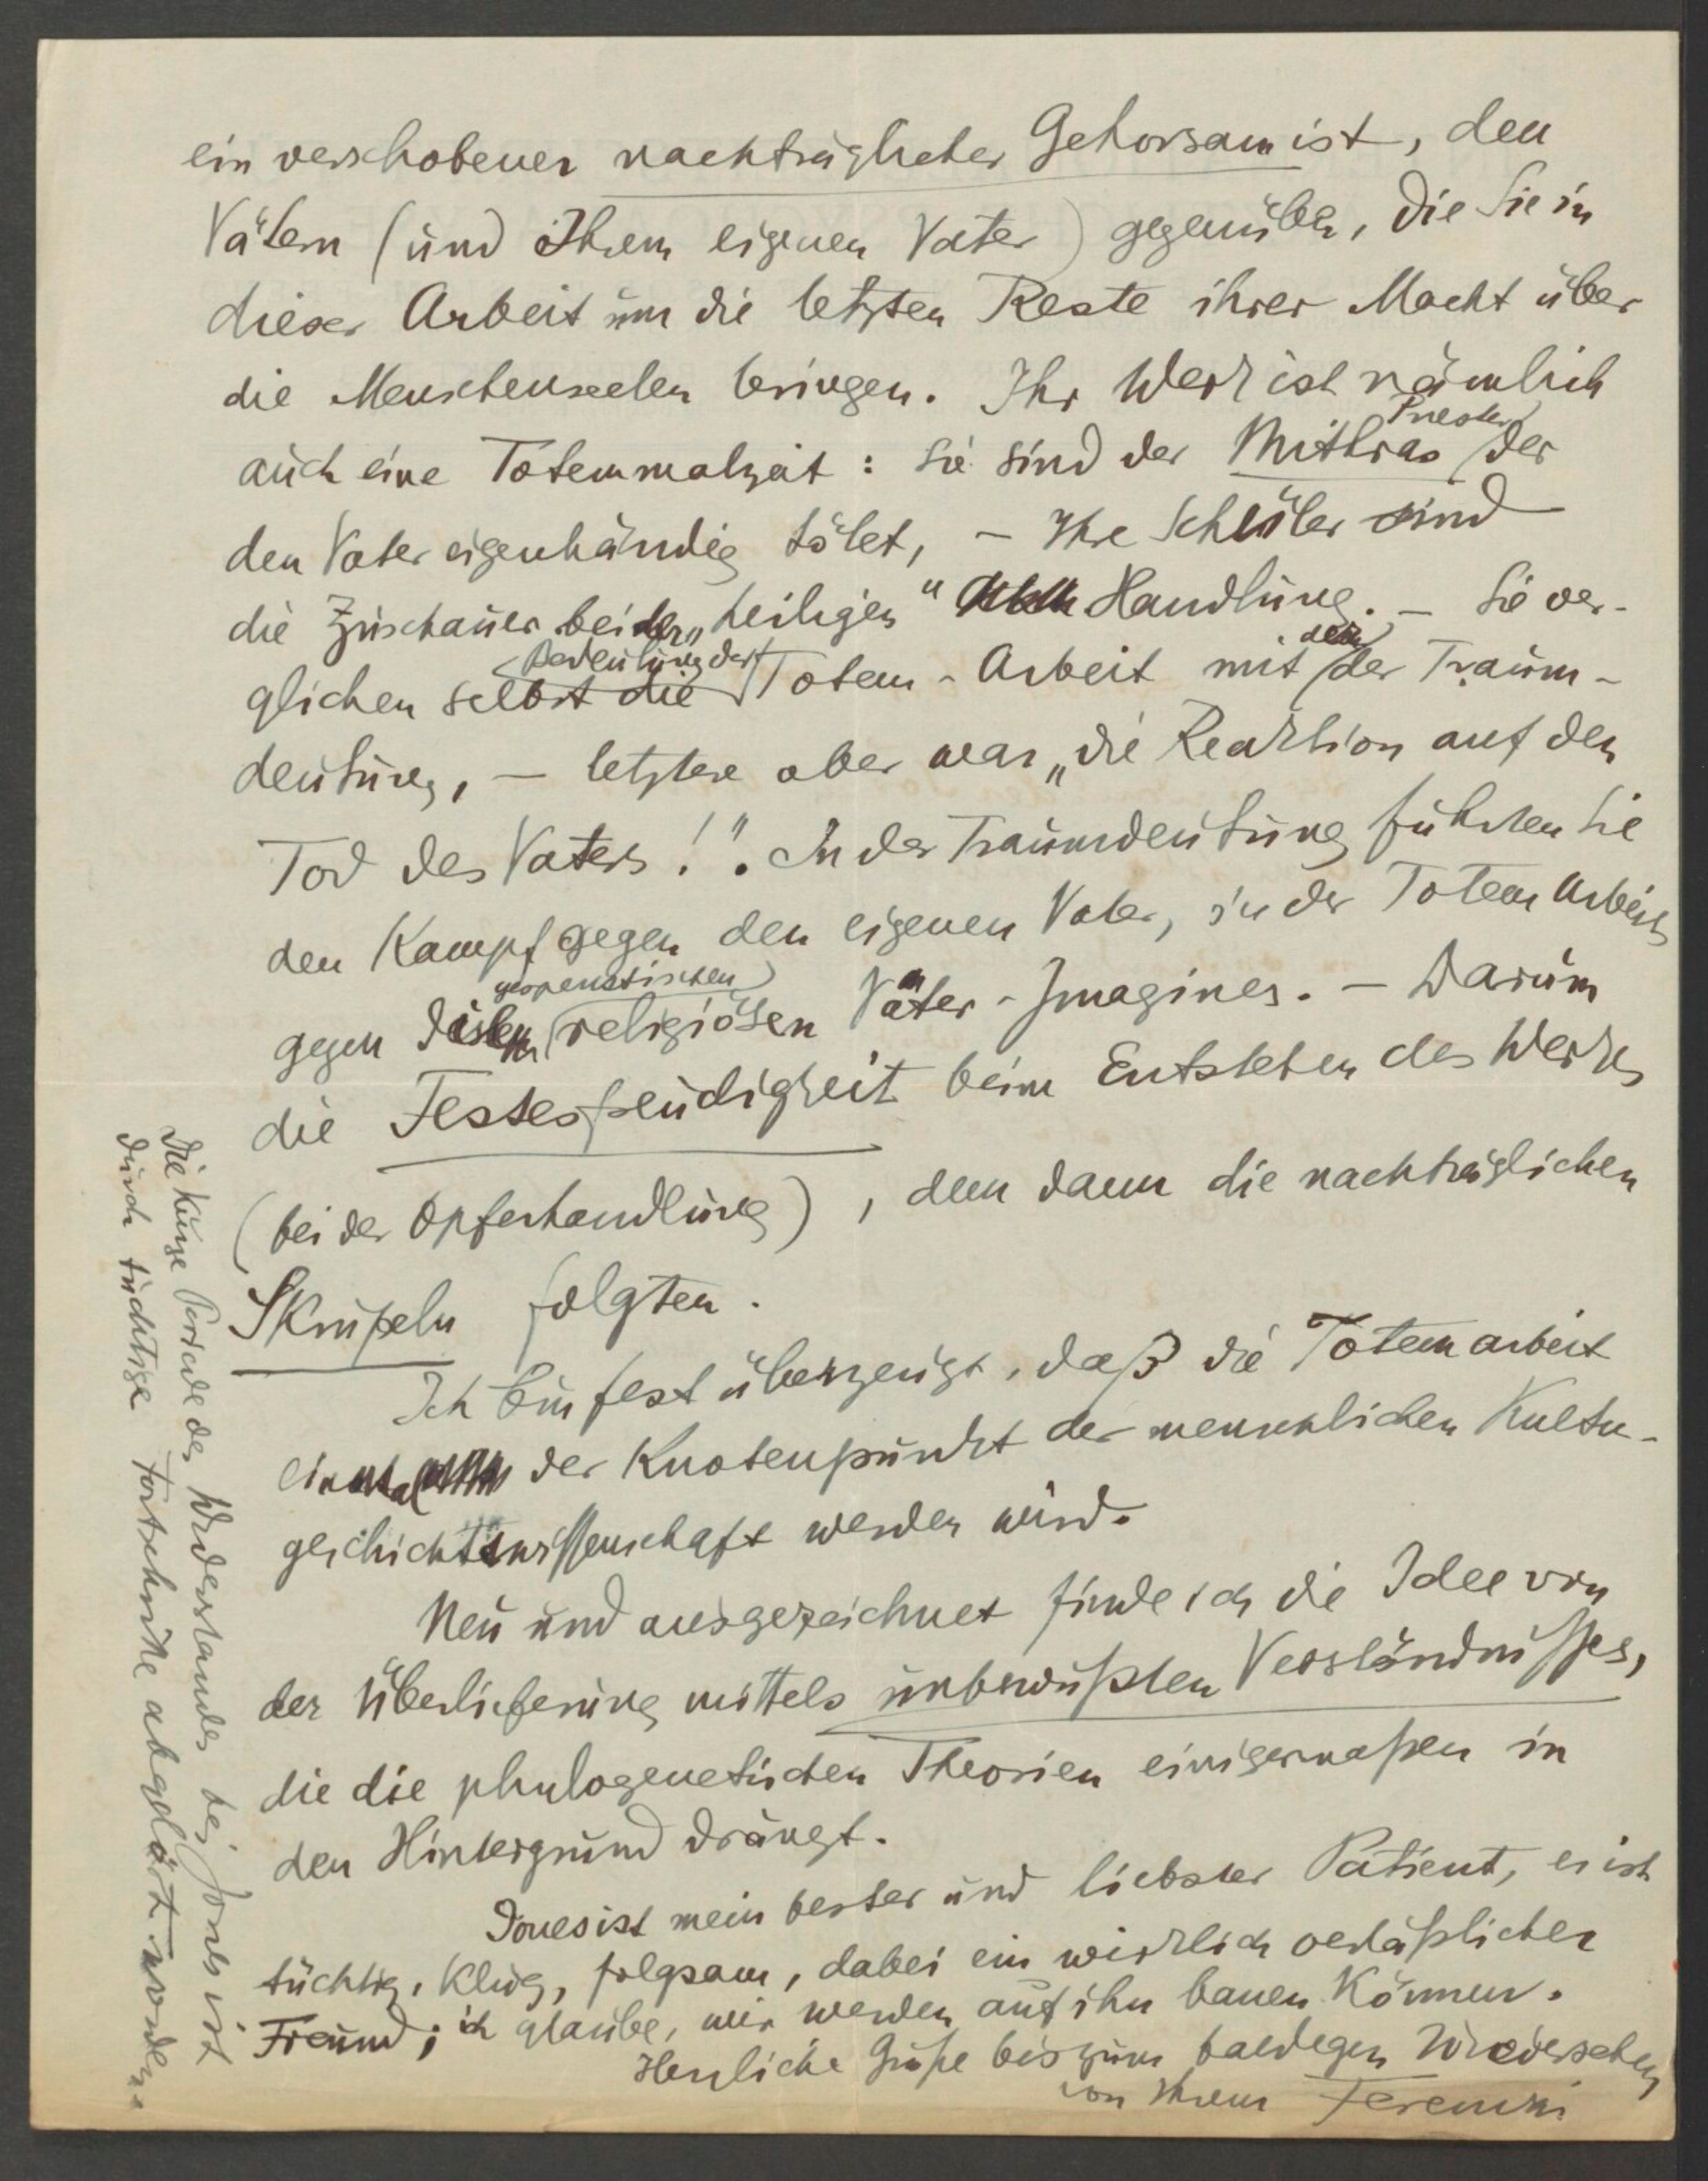 ein verschobener nachträglicher Gehorsam ist, den
Vätern (und Ihrem eigenen Vater) gegenüber, die Sie in
dieser Arbeit um die letzten Reste ihrer Macht über
die Menschenseelen bringen. Ihr Werk ist nämlich
auch eine Totemmalzeit: Sie sind der Mithraspriester der
den Vater eigenhändig tötet, – Ihre Schüler sind
die Zuschauer bei der „heiligen“ Handlung. – Sie ver-
glichen selbst die Bedeutung der Totem-Arbeit mit der Traum-
deutung, – letztere aber war „die Reaktion auf den
Tod des Vaters!“. In der Traumdeutung führten Sie
den Kampf gegen den eigenen Vater, in der Totem Arbeit
gegen diesen gespenstischen religiösen Vater-Imagines. – Darum
die Festesfreudigkeit beim Entstehen des Werkes
(bei der Opferhandlung), dem dann die nachträglichen
Skrupeln folgten.
Ich bin fest überzeugt, daß die Totemarbeit
einmal der Knotenpunkt der menschlichen Kultu-
geschichtswissenschaft werden wird.
Neu und ausgezeichnet finde ich die Idee von
der Überlieferung mittels unbewußten Verständnisses,
die die phylogenetischen Theorien einigermaßen in
den Hintergrund drängt.
Jones ist mein bester und liebster Patient, er ist
tüchtig, klug, folgsam, dabei ein wirklich verläßlicher
Freund; ich glaube, wir werden auf ihn bauen können.
Herzliche Grüße bis zum baldigen Wiedersehen
von Ihrem Ferenczi
Die kurze Periode des Widerstandes bei Jones ist
durch tüchtige Fortschritte abgelöst worden.